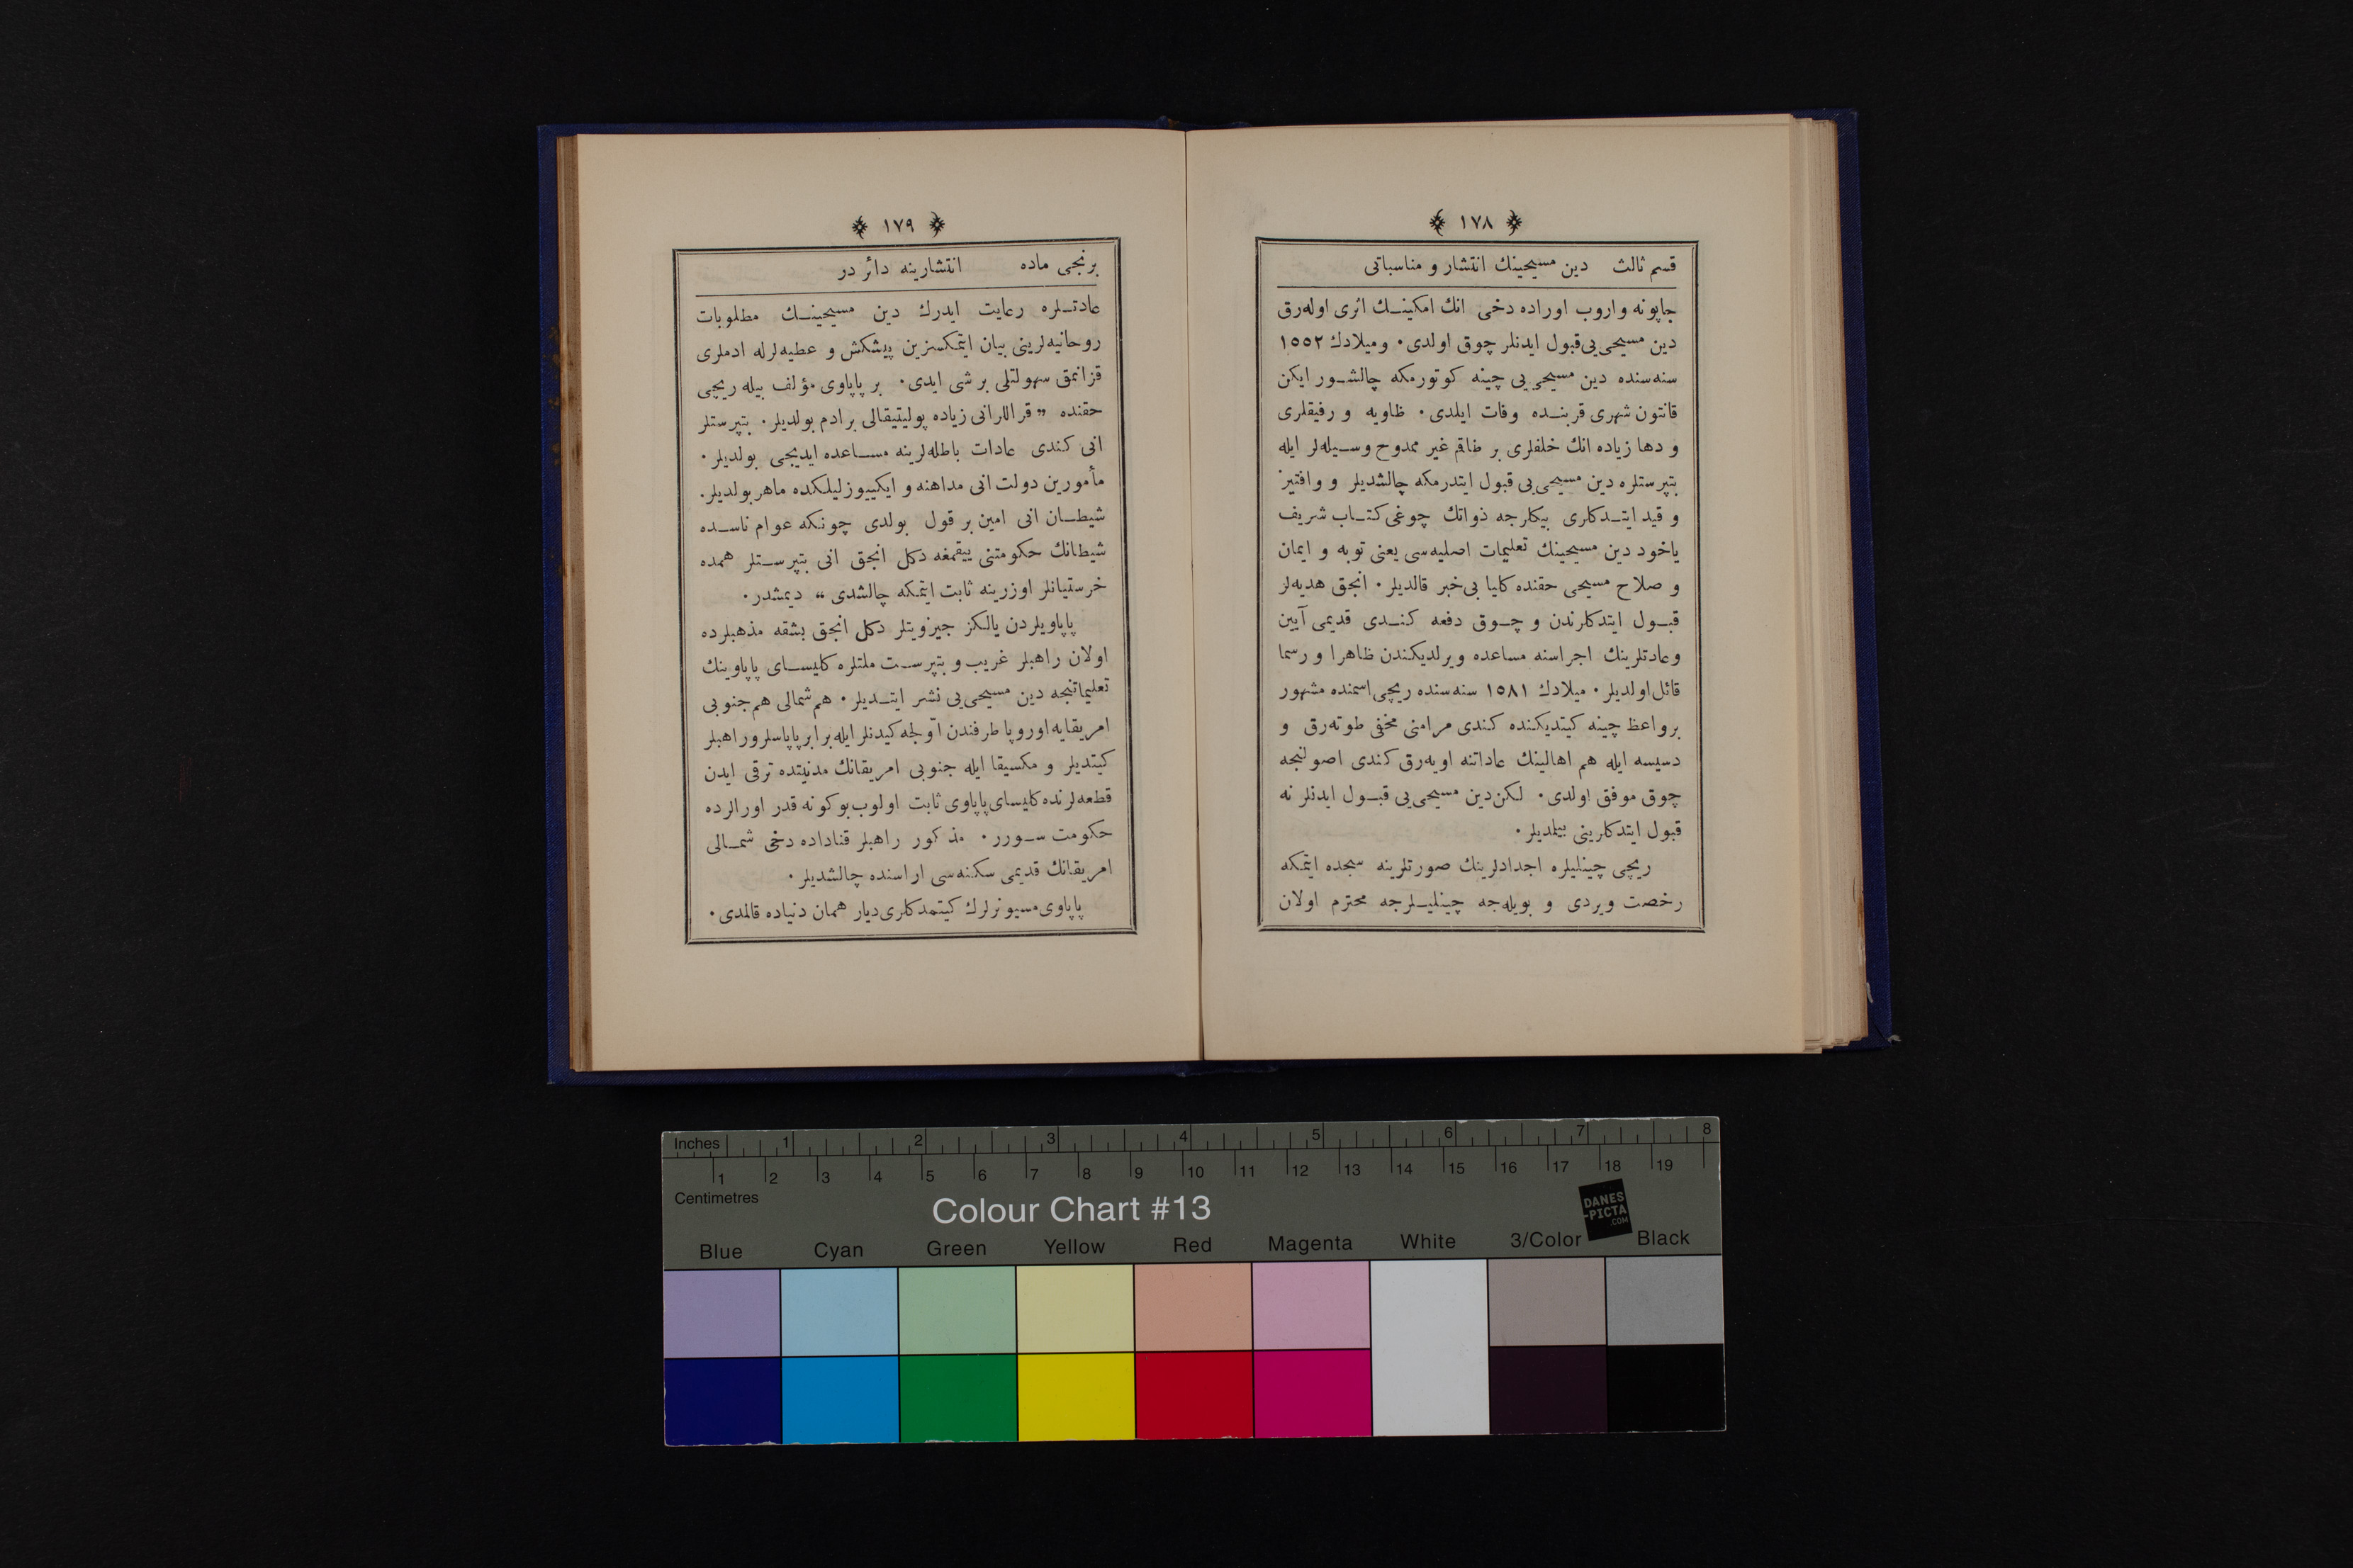 ﴿ ١٧٨ ﴾
قسم ثالث دين مسيحينك انتشار و مناسباتى
جاپونه واروب اوراده دخى انك امكينـك اثرى اوله‌رق
دين مسيحى‌يى قبول ايدنلر چوق اولدى٠ وميلادك ١٥٥٢
سنه‌سنده دين مسيحى‌يى چينه كوتورمكه چالشـور ايكن
قانتون شهرى قربنـده وفات ايلدى٠ ظاويه و رفيقلرى
و دها زياده انك خلفلرى بر طاقم غير ممدوح وسـيله‌لر ايله
بتپرستلره دين مسيحى‌يى قبول ايتدرمكه چالشديلر و وافتيز
و قيد ايتـدكلرى بيكلرجه ذواتك چوغى كتـاب شريف
ياخود دين مسيحينك تعليمات اصليه‌سى يعنى توبه و ايمان
و صلاح مسيحى حقنده كليا بى‌خبر قالديلر٠ انجق هديه‌لر
قبـول ايتدكلرندن و چـوق دفعه كنـدى قديمى آيين
وعادتلرينك اجراسنه مساعده ويرلديكندن ظاهرا و رسما
قائل اولديلر٠ ميلادك ١٥٨١ سنه‌سنده ريچى اسمنده مشهور
برواعظ چينه كيتديكنده كندى مرامنى مخفى طوته‌رق و
دسيسه ايله هم اهالينك عاداتنه اويه‌رق كندى اصولنجه
چوق موفق اولدى٠ لكن دين مسيحى‌يى قبـول ايدنلر نه
قبول ايتدكلرينى بيلمديلر٠
ريچى چينليلره اجدادلرينك صورتلرينه سجده ايتمكه
رخصت ويردى و بويله‌جه چينليـلرجه محترم اولان
﴿ ١٧٩ ﴾
برنجى ماده انتشارينه دائر در
عادتـلره رعايت ايدرك دين مسيحينـك مطلوبات
روحانيه‌لرينى بيان ايتمكسزين پيشكش و عطيه‌لرله ادملرى
قزانمق سهولتلى بر شى ايدى٠ بر پاپاوى مؤلف بيله ريچى
حقنده „ قراللر انى زياده پوليتيقالى برادم بولديلر٠ بتپرستلر
انى كندى عادات باطله‌لرينه مسـاعده ايديجى بولديلر٠
مأمورين دولت انى مداهنه و ايكييوزليلكده ماهر بولديلر.
شيطـان انى امين بر قول بولدى چونكه عوام ناسـده
شيطانك حكومتنى ييقمغه دكل انجق انى بتپرسـتلر همده
خرستيانلر اوزرينه ثابت ايتمكه چالشدى “ ديمشدر٠
پاپاويلردن يالكز جيزويتلر دكل انجق بشقه مذهبلرده
اولان راهبلر غريب و بتپرسـت ملتلره كليسـاى پاپاوينك
تعليماتنجه دين مسيحى‌يى نشر ايتـديلر٠ هم شمالى هم جنوبى
امريقايه اوروپا طرفندن اولجه كيدنلر ايله برابر پاپاسلر وراهبلر
كيتديلر و مكسيقا ايله جنوبى امريقانك مدنيتده ترقى ايدن
قطعه‌لرنده كليساى پاپاوى ثابت اولوب بوكونه قدر اورالرده
حكومت سـورر٠ مذكور راهبلر قناداده دخى شمـالى
امريقانك قديمى سكنه‌سى اراسنده چالشديلر٠
پاپاوى مسيونرلرك كيتمدكلرى ديار همان دنياده قالمدى٠
Inches 1 2 3 4 5 6 7 8
1 2 3 4 5 6 7 8 9 10 11 12 13 14 15 16 17 18 19
Centimetres
Colour Chart #13
DANES
-PICTA
.COM
Blue Cyan Green Yellow Red Magenta White 3/Color Black